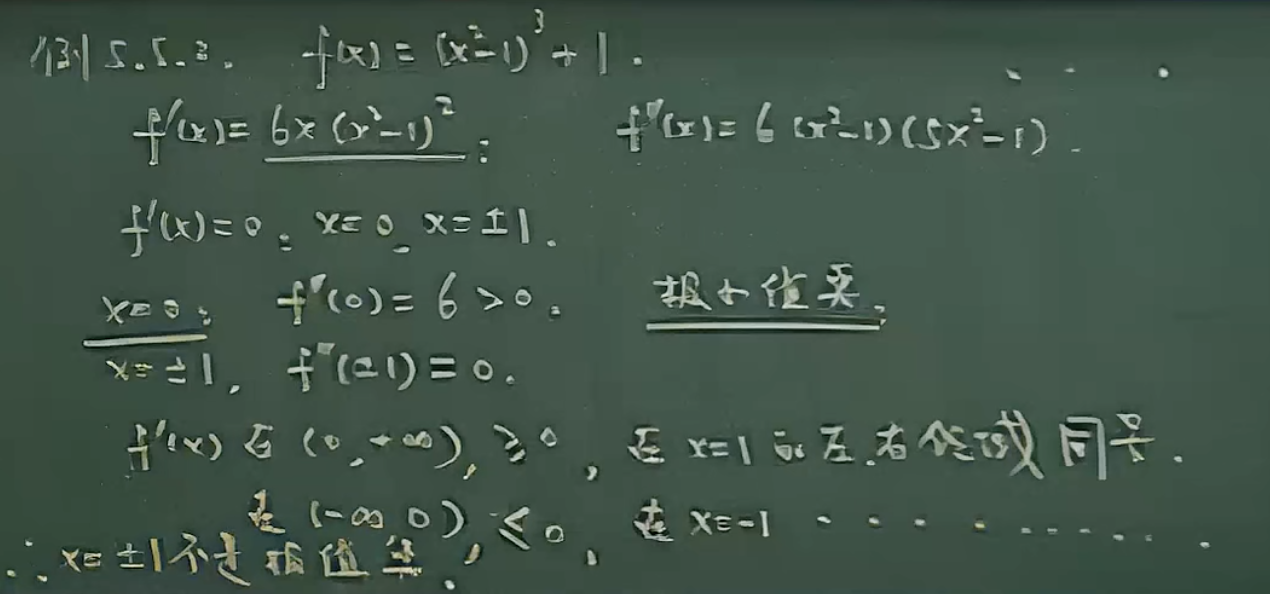 例5.5.3. f(x) = (x²-1)³ + 1.
f'(x) = 6x(x²-1)²; f''(x) = 6(x²-1)(5x²-1).
f'(x) = 0: x=0, x=±1.
x=0: f''(0) = 6 > 0. 极小值点.
x=±1, f''(±1) = 0.
f'(x) 在 (0,+∞) ≥ 0, 在 x=1 的左右邻域同号.
在 (-∞ 0) ≤ 0, 在 x=-1 ..........
∴ x=±1 不是极值点.